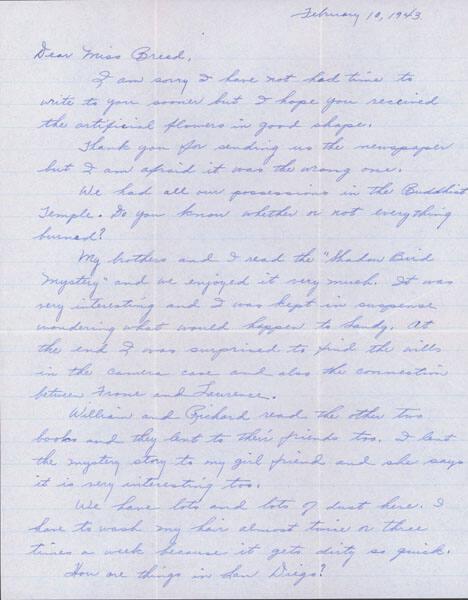 February 10, 1943
Dear Miss Breed,
I am sorry I have not had time to
write to you sooner but I hope you received
the artificial flowers in good shape.
Thank you for sending us the newspaper
but I am afraid it was the wrong one.
We had all our possessions in the Buddhist
Temple. Do you know whether or not everything
burned?
My brothers and I read the "Shadow Bird
Mystery" and we enjoyed it very much. It was
very interesting and I was kept in suspense
wondering what would happen to Sandy. At
the end I was surprised to find the wills
in the camera case and also the connection
between and Lawrence.
William and Richard read the other two
books and they lent to their friends too. I lent
the mystery story to my girl friend and she says
it is very interesting too.
We have lots and lots of dust here. I
have to wash my hair almost twice or three
times a week because it gets dirty so quick.
How are things in San Diego?